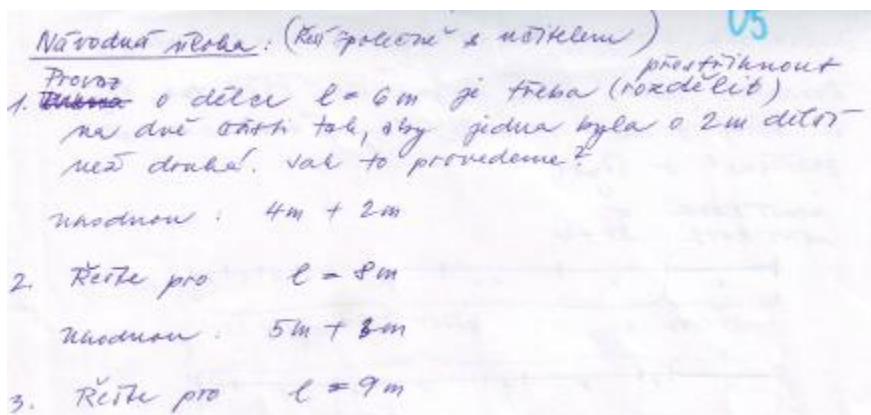 U5
Návodná úloha: (Řeší společně s učitelem)
Provaz přestřihnout
1. o délce l = 6m je třeba (rozdělit)
na dvě části tak, aby jedna byla o 2m delší
než druhá. Jak to provedeme?
uhodnou: 4m + 2m
2. Řešte pro l = 8m
uhodnou: 5m + 3m
3. Řešte pro l = 9m